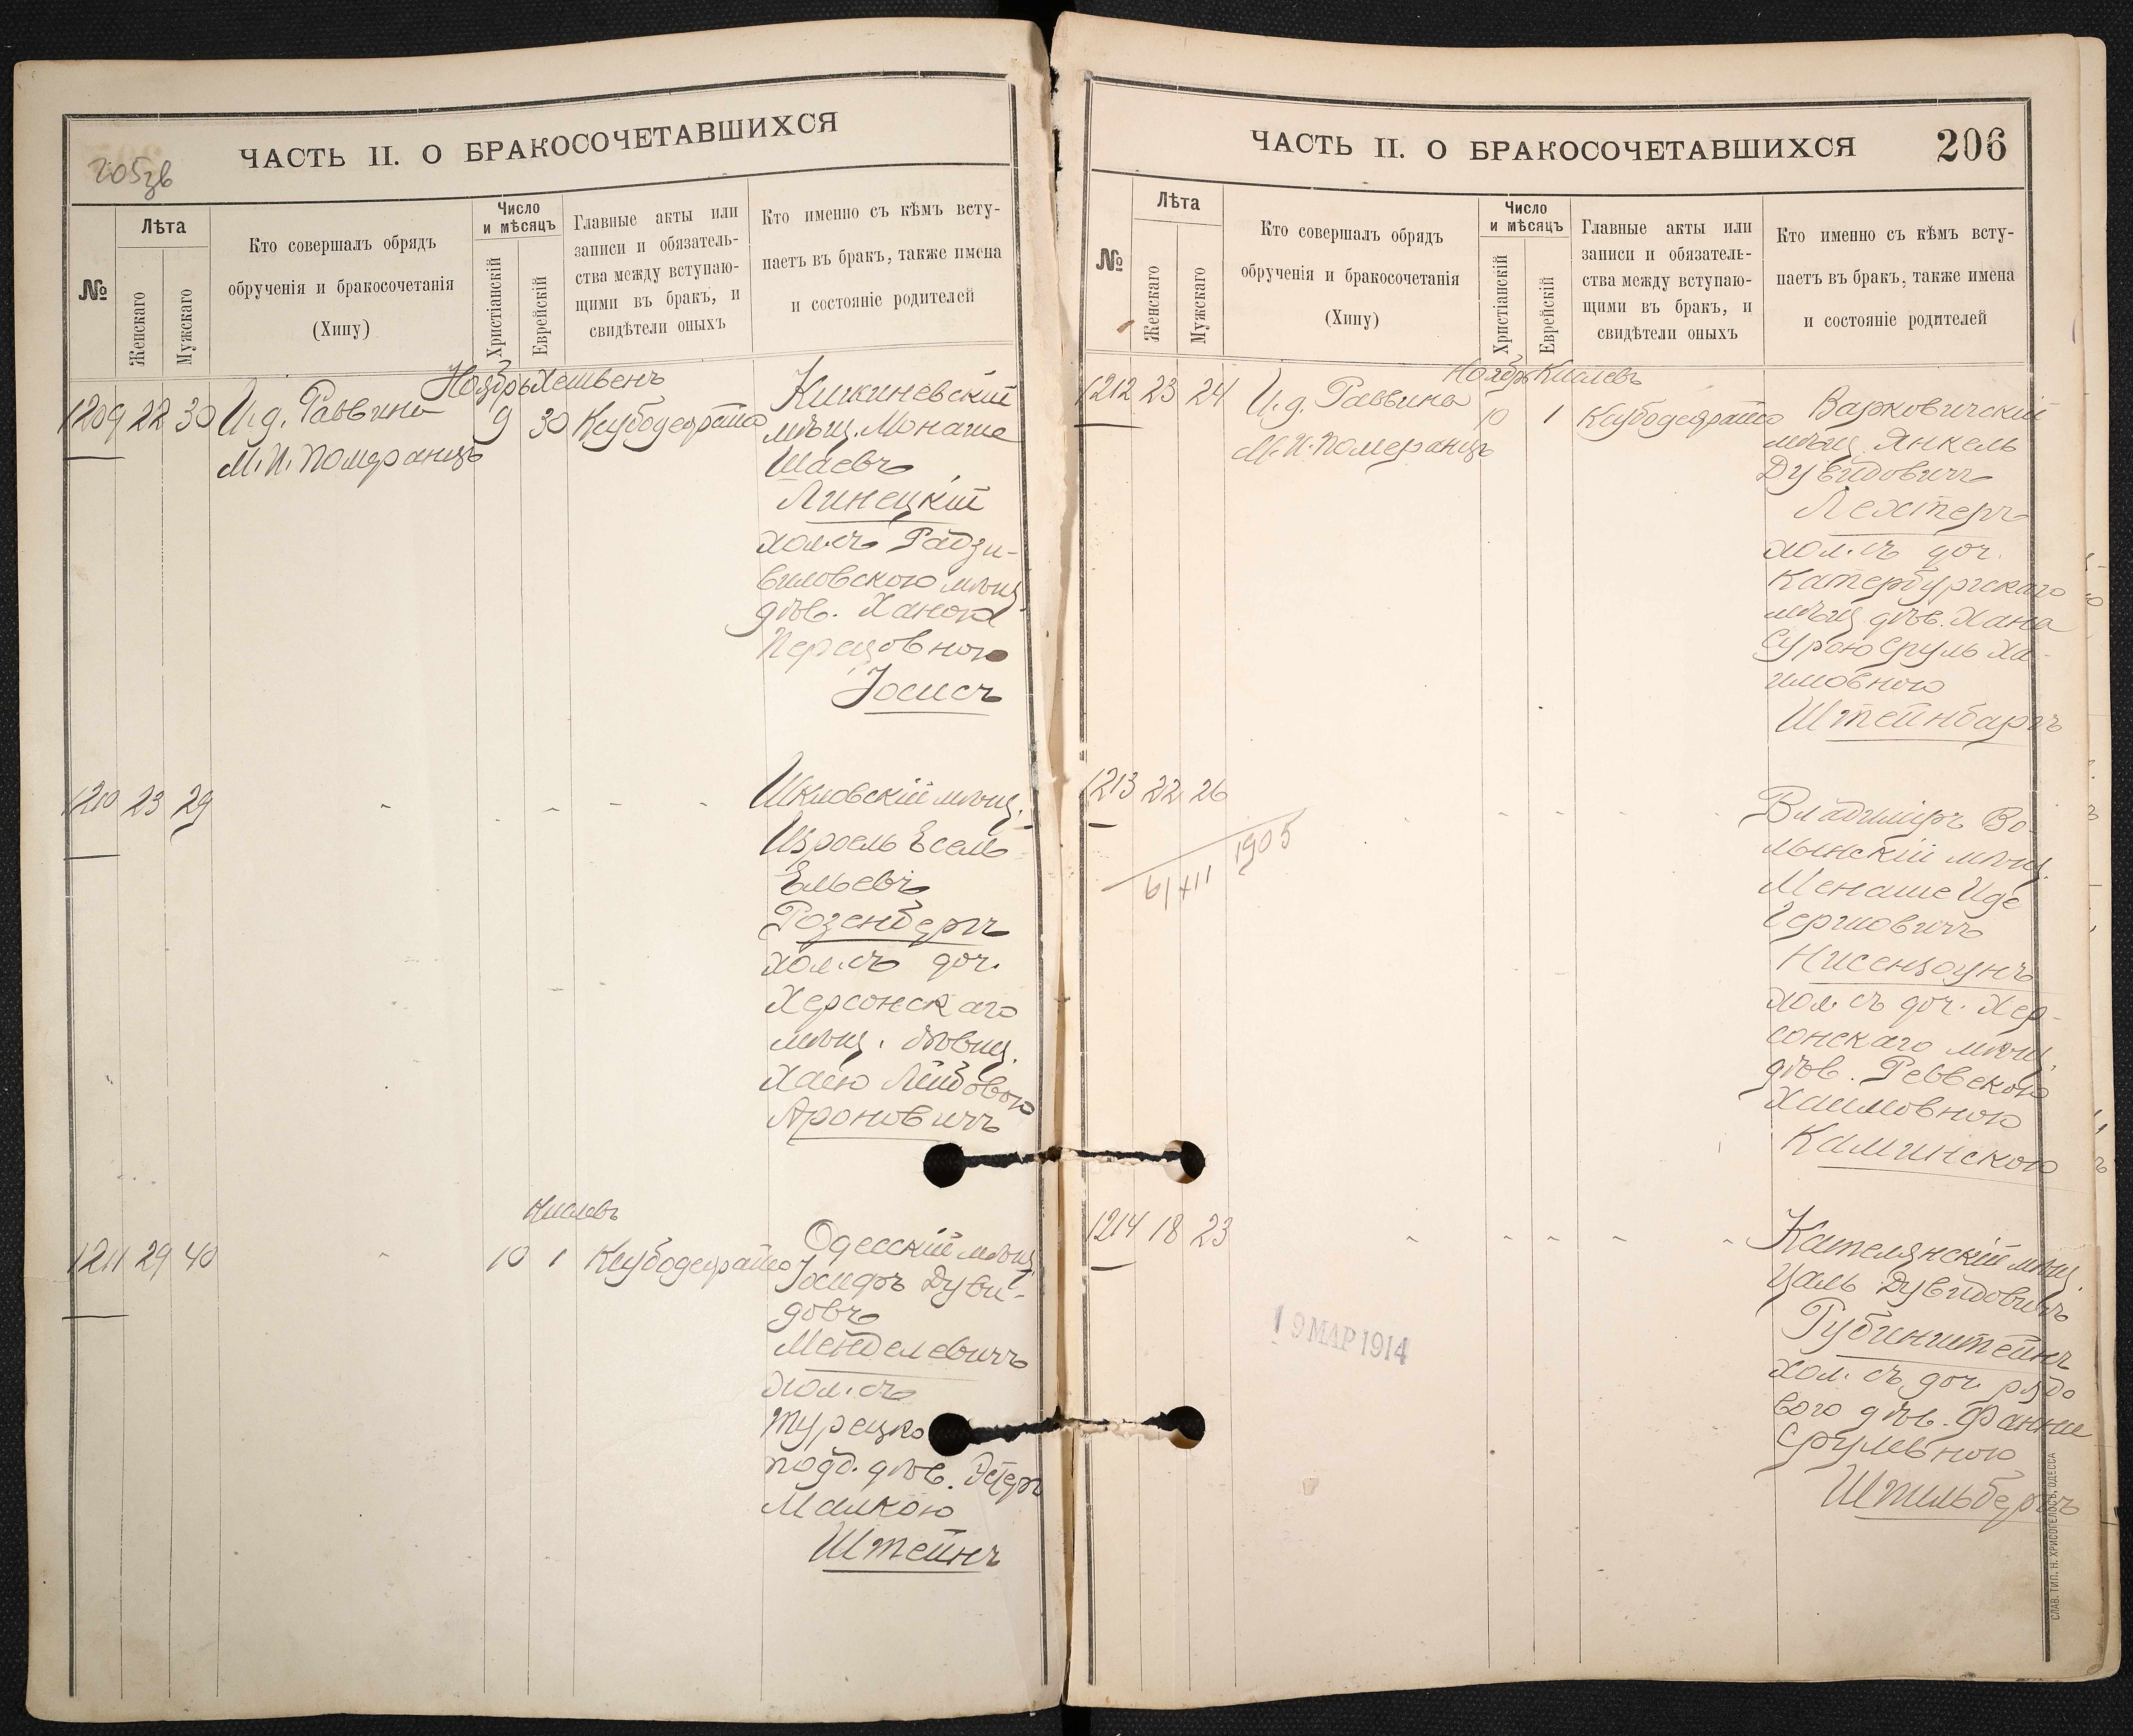 ЧАСТЬ II. О БРАКОСОЧЕТАВШИХСЯ
205зв
№
Лѣта
Женскаго
Мужскаго
Кто совершалъ обрядъ
обрученія и бракосочетанія
(Хипу)
Число
и мѣсяцъ
Христіанскій
Еврейскій
Главные акты или
записи и обязатель-
ства между вступаю-
щими въ бракъ, и
свидѣтели оныхъ
Кто именно съ кѣмъ всту-
паетъ въ бракъ, также имена
и состояніе родителей
Ноябрь Хешвенъ
1209 22 30 И.д. Раввина 9 30 Ксубодеврайто
М.И. Померанцъ
Кишиневскій
мѣщ. Монаше
Шаевъ
Линецкій
хол. съ Радзи-
виловскою мѣщ.
дѣв. Ханою
Перецовною
Іосисъ
1210 23 29
Шкловскій мѣщ.
Изроель Есель
Ельевъ
Розенбергъ
хол. съ доч.
Херсонскаго
мѣщ. дѣвиц.
Хаею Лейбовою
Ароновичъ
Кислевъ
1211 29 40 10 1 Ксубодеврайто
Одесскій мѣщ.
Іосифъ Дуви-
довъ
Менделевичъ
хол. съ
турецко
подд. дѣв. Эстеръ
Малкою
Штейнъ
ЧАСТЬ II. О БРАКОСОЧЕТАВШИХСЯ 206
№
Лѣта
Женскаго
Мужскаго
Кто совершалъ обрядъ
обрученія и бракосочетанія
(Хипу)
Число
и мѣсяцъ
Христіанскій
Еврейскій
Главные акты или
записи и обязатель-
ства между вступаю-
щими въ бракъ, и
свидѣтели оныхъ
Кто именно съ кѣмъ всту-
паетъ въ бракъ, также имена
и состояніе родителей
Ноябрь Кислевъ
1212 23 24 И.д. Раввина 10 1 Ксубодеврайто
М.И. Померанцъ
Варковичскій
мѣщ. Янкель
Дувидовичъ
Лехтеръ
хол. съ доч.
Катербургскаго
мѣщ. дѣв. Хана
Сурою Сруль Ха-
имовною
Штейнбаргъ
1213 22 26
6/XII 1905
Владимиръ Во-
лынскій мѣщ.
Менаше Иде
Гершовичъ
Нисенцоунъ
хол. съ доч. Хер-
сонскаго мѣщ.
дѣв. Реввекою
Хаимовною
Калминскою
1214 18 23
Кателянскій мѣщ.
Цаль Дувидовичъ
Рубинштейнъ
хол. съ доч. рядо
вого дѣв. Фанни
Срулевною
Штильбергъ
19 МАР 1914
СЛАВ. ТИП. Н. ХРИСОГЕЛОСЪ, ОДЕССА